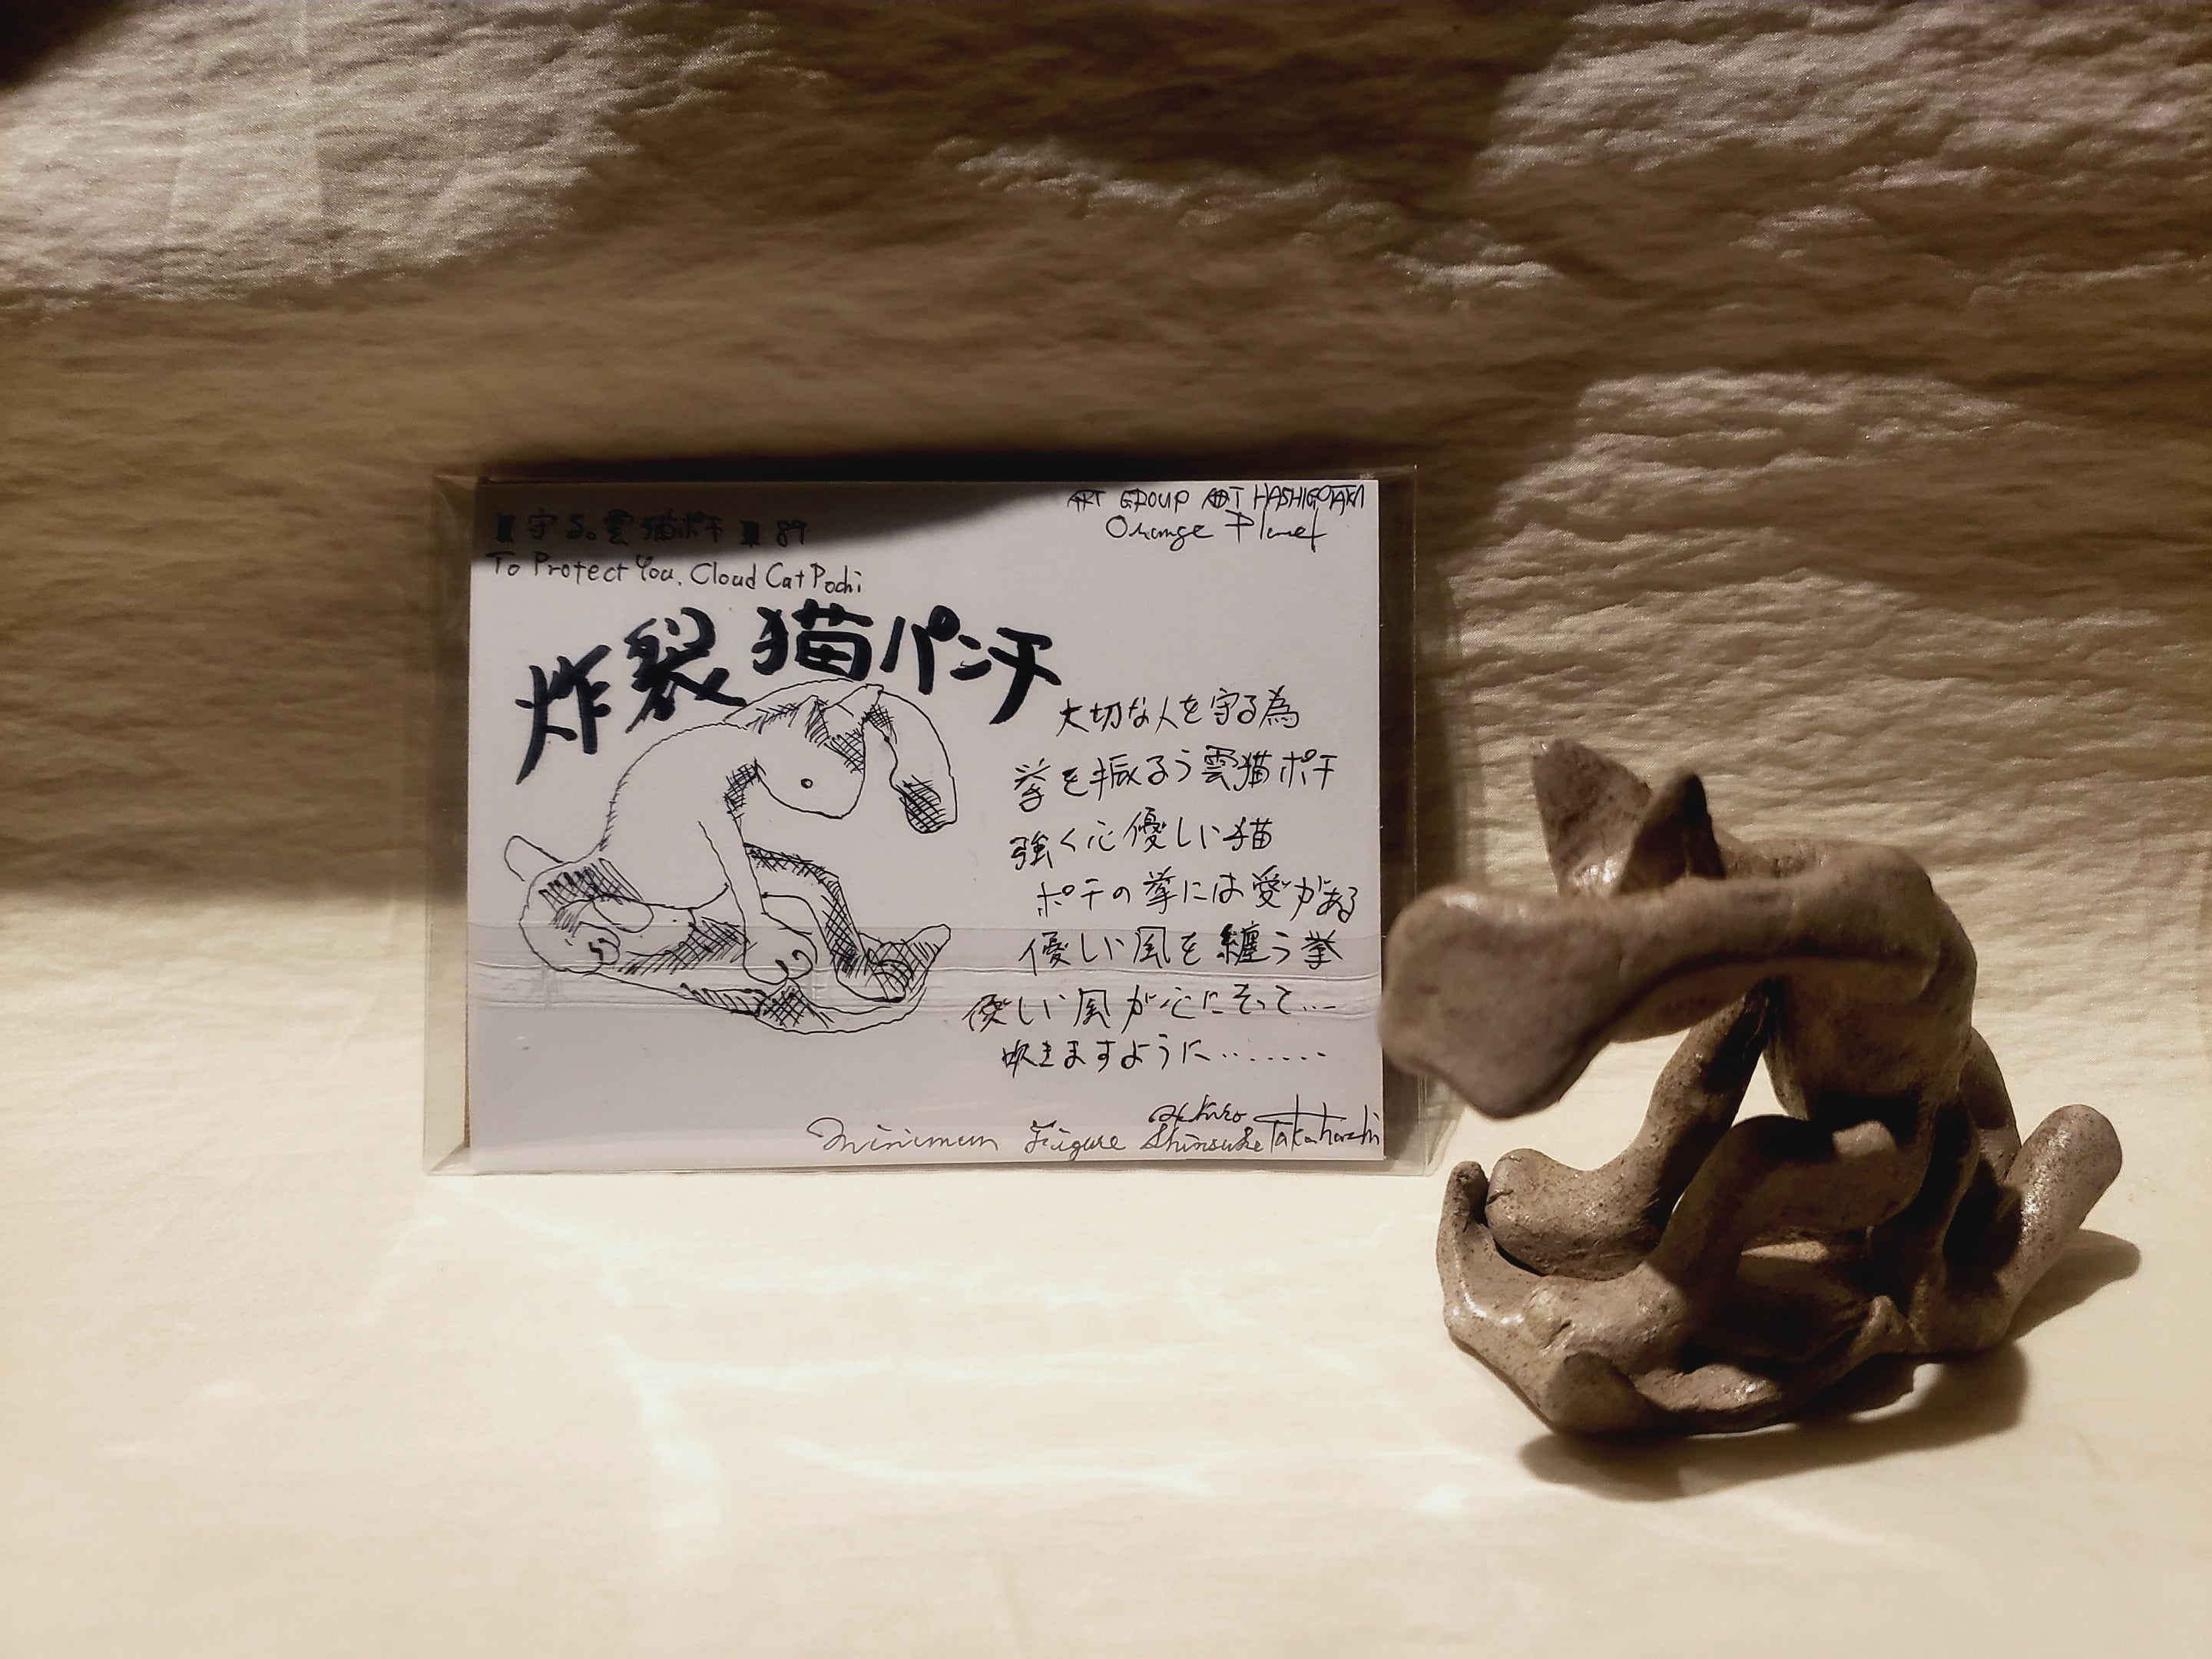 守る。雲猫ポチ 89
To Protect You. Cloud Cat Pochi
ART GROUP ART HASHIGOTAKA
Orange Planet
炸裂猫パンチ
大切な人を守る為
拳を振るう雲猫ポチ
強く心優しい猫
ポチの拳には愛がある
優しい風を纏う拳
優しい風が心にそって…
吹きますように……..
Minimum Figure Shinsuke Takahashi